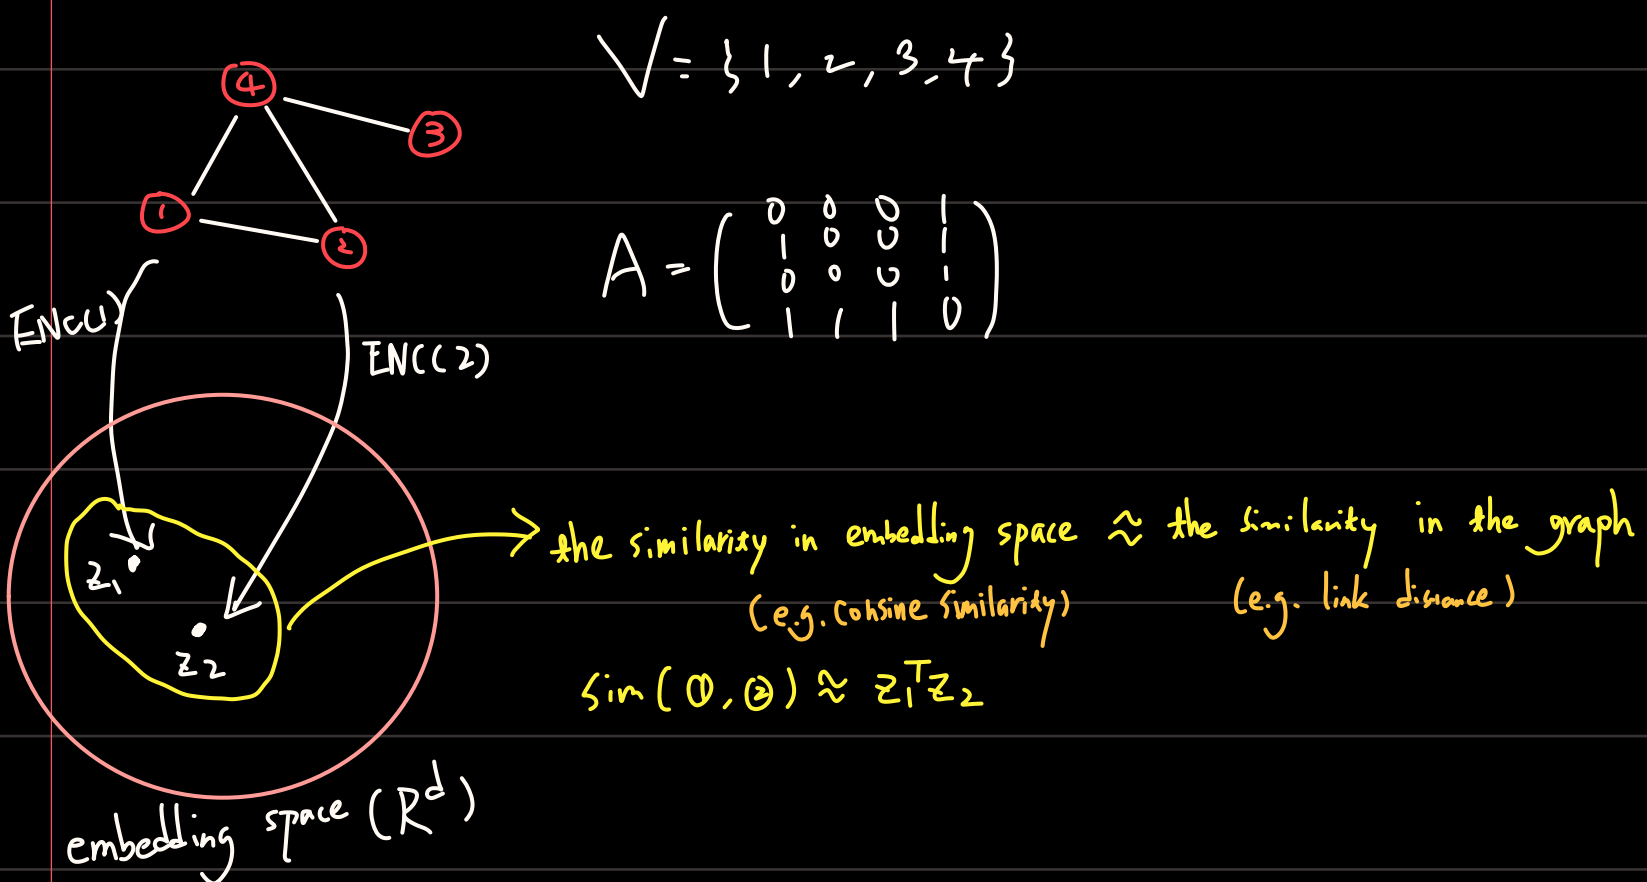 V = {1, 2, 3, 4}
4
3
1
2
A = ( 0 0 0 1
1 0 0 1
0 0 0 1
1 1 1 0 )
ENC(1)
ENC(2)
the similarity in embedding space ≈ the similarity in the graph
(e.g. consine similarity) (e.g. link distance)
z₁
z₂
sim(①, ②) ≈ z₁ᵀz₂
embedding space (Rᵈ)